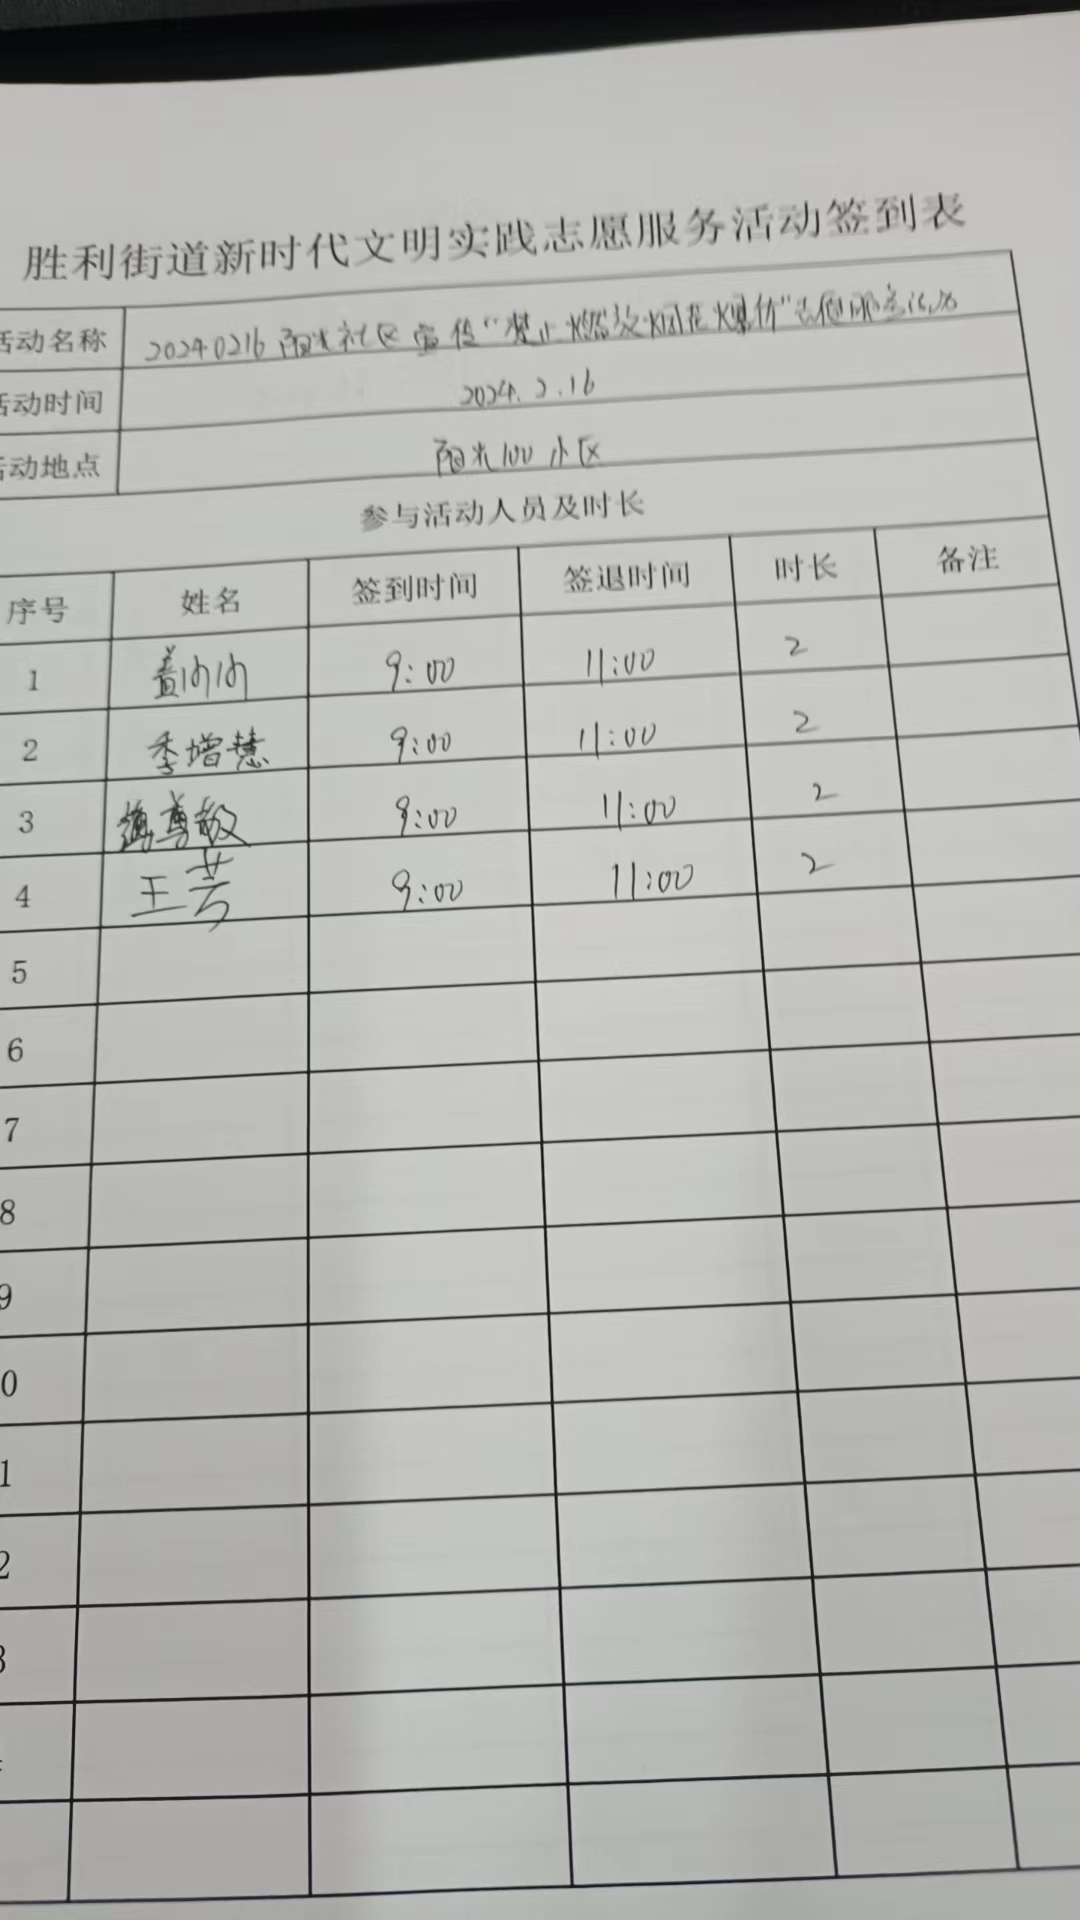 胜利街道新时代文明实践志愿服务活动签到表
活动名称 20240216阳光社区宣传“禁止燃放烟花爆竹”志愿服务活动
活动时间 2024.2.16
活动地点 阳光100小区
参与活动人员及时长
序号 姓名 签到时间 签退时间 时长 备注
1 9:00 11:00 2
2 季增慧 9:00 11:00 2
3 9:00 11:00 2
4 王芸 9:00 11:00 2
5
6
7
8
9
0
1
2
3